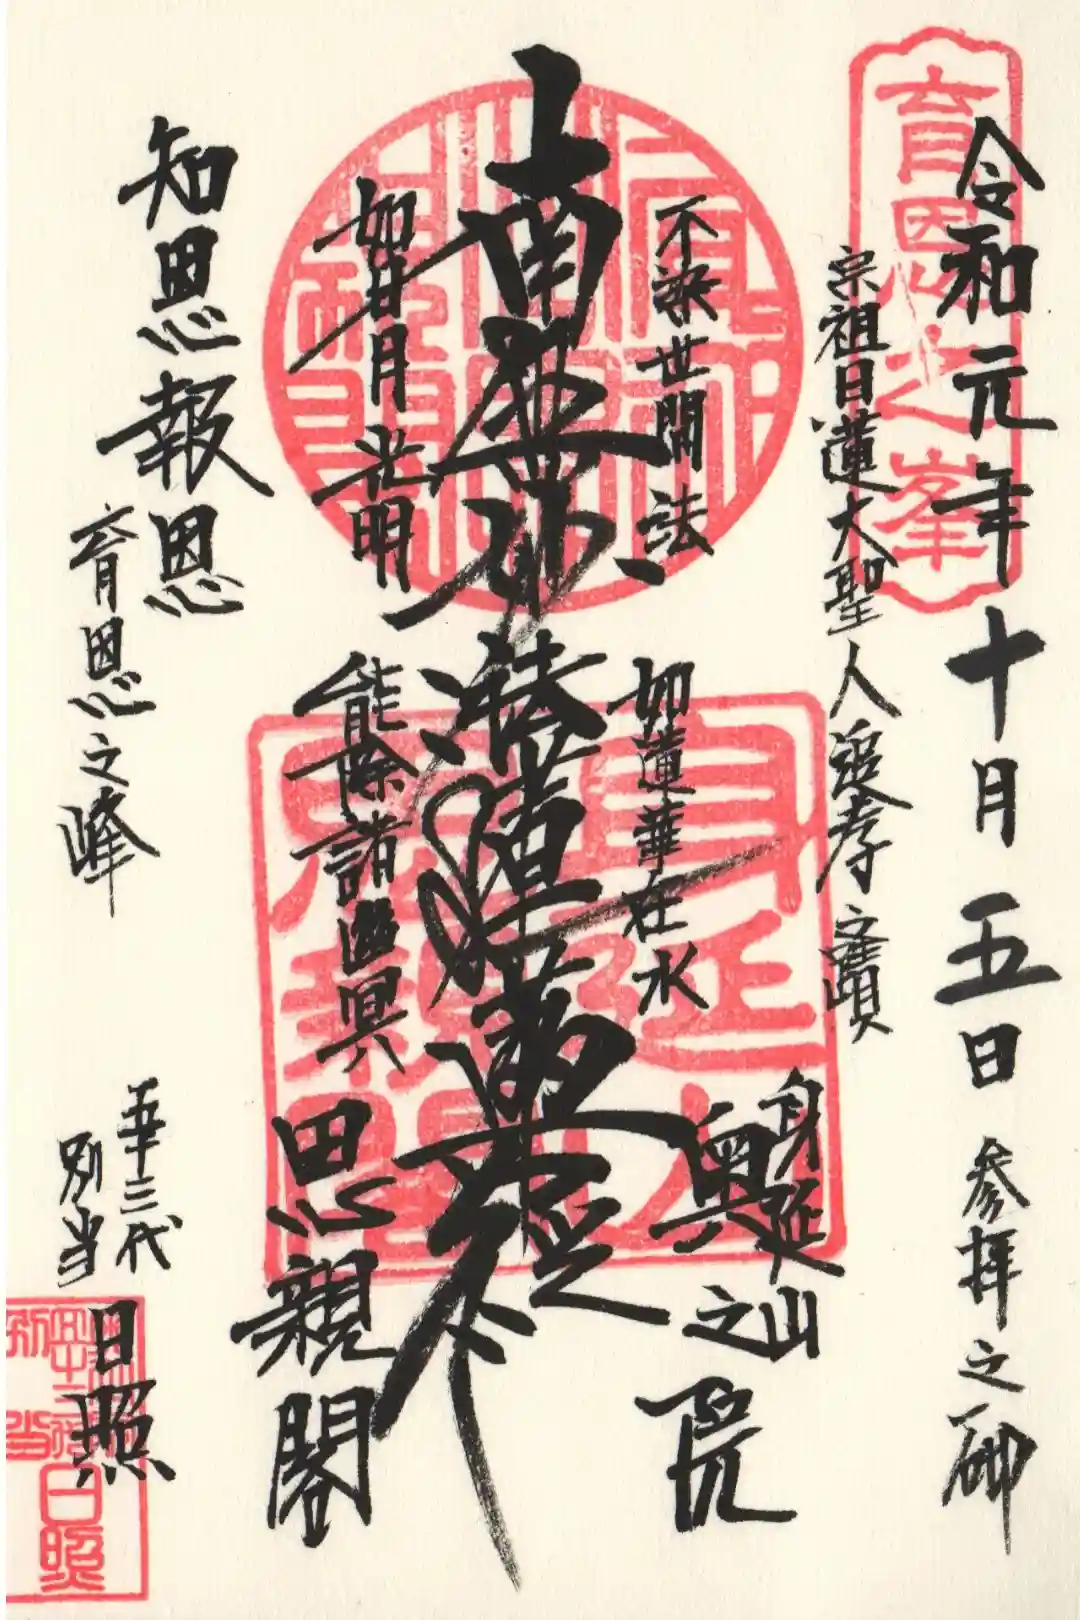 令和元年十月五日 参拝之砌
宗祖日蓮大聖人追孝之霊蹟
育恩之峯
不染世間法
如蓮華在水
身延山
奥之院
南無妙法蓮華経
如日月光明
能除諸幽冥
思親閣
知恩報恩
育恩之峰
別当
日照
身延山
思親閣
日照